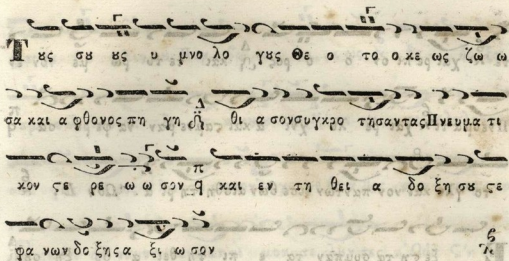 Τȣς σȣ ȣς υ μνο λο γȣς Θε ο το ο κε ως ζω ω
σα και α φθονος πη γη θι α σον συγκρο τησαντας Πνευμα τι
κον ϛε ρε ω ω σον και εν τη θει α δο ξη σȣ ϛε
φα νων δο ξης α ξι ω σον